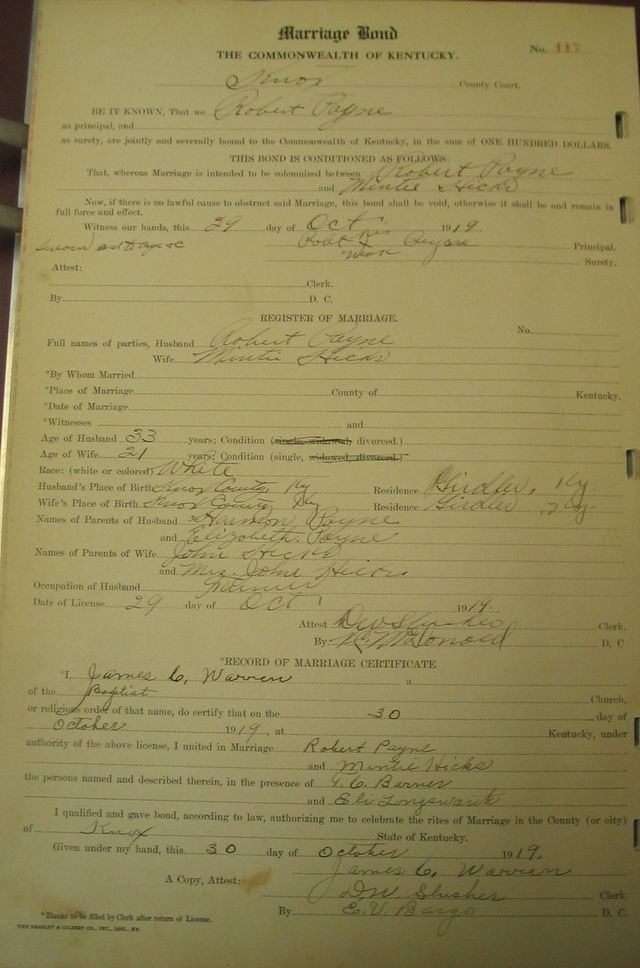 Marriage Bond
THE COMMONWEALTH OF KENTUCKY.
No. 117
Knox County Court.
BE IT KNOWN, That we Robert Payne
as principal, and
as surety, are jointly and severally bound to the Commonwealth of Kentucky, in the sum of ONE HUNDRED DOLLARS.
THIS BOND IS CONDITIONED AS FOLLOWS:
That, whereas Marriage is intended to be solemnized between Robert Payne
and Mintie Hicks
Now, if there is no lawful cause to obstruct said Marriage, this bond shall be void, otherwise it shall be and remain in
full force and effect.
Witness our hands, this 29 day of Oct 1919.
his
Robt X Payne Principal.
mark
Surety.
Attest:
Clerk.
By D. C.
REGISTER OF MARRIAGE.
No.
Full names of parties, Husband Robert Payne
Wife Mintie Hicks
*By Whom Married
*Place of Marriage County of Kentucky.
*Date of Marriage
*Witnesses and
Age of Husband 33 years; Condition (single, widowed, divorced.)
Age of Wife 21 years; Condition (single, widowed, divorced.)
Race: (white or colored) White
Husband's Place of Birth Knox County, Ky Residence Girdler, Ky
Wife's Place of Birth Knox County Ky Residence Girdler, Ky
Names of Parents of Husband Harrison Payne
and Elizabeth Payne
Names of Parents of Wife John Hicks
and Mrs. John Hicks
Occupation of Husband Farmer
Date of License 29 day of Oct 1919.
Attest D W Slusher Clerk.
By McDonald D. C
*RECORD OF MARRIAGE CERTIFICATE
*I, James C. Warren a
of the Baptist Church,
or religious order of that name, do certify that on the 30 day of
October 1919, at Kentucky, under
authority of the above license, I united in Marriage Robert Payne
and Mintie Hicks
the persons named and described therein, in the presence of G. C. Barner
and Eli
I qualified and gave bond, according to law, authorizing me to celebrate the rites of Marriage in the County (or city)
of Knox State of Kentucky.
Given under my hand, this 30 day of October 1919.
James C. Warren
A Copy, Attest: D. W. Slusher Clerk
By E. V. Bargo D. C.
*Blanks to be filled by Clerk after return of License.
THE BRADLEY & GILBERT CO., INC., LOU., KY.